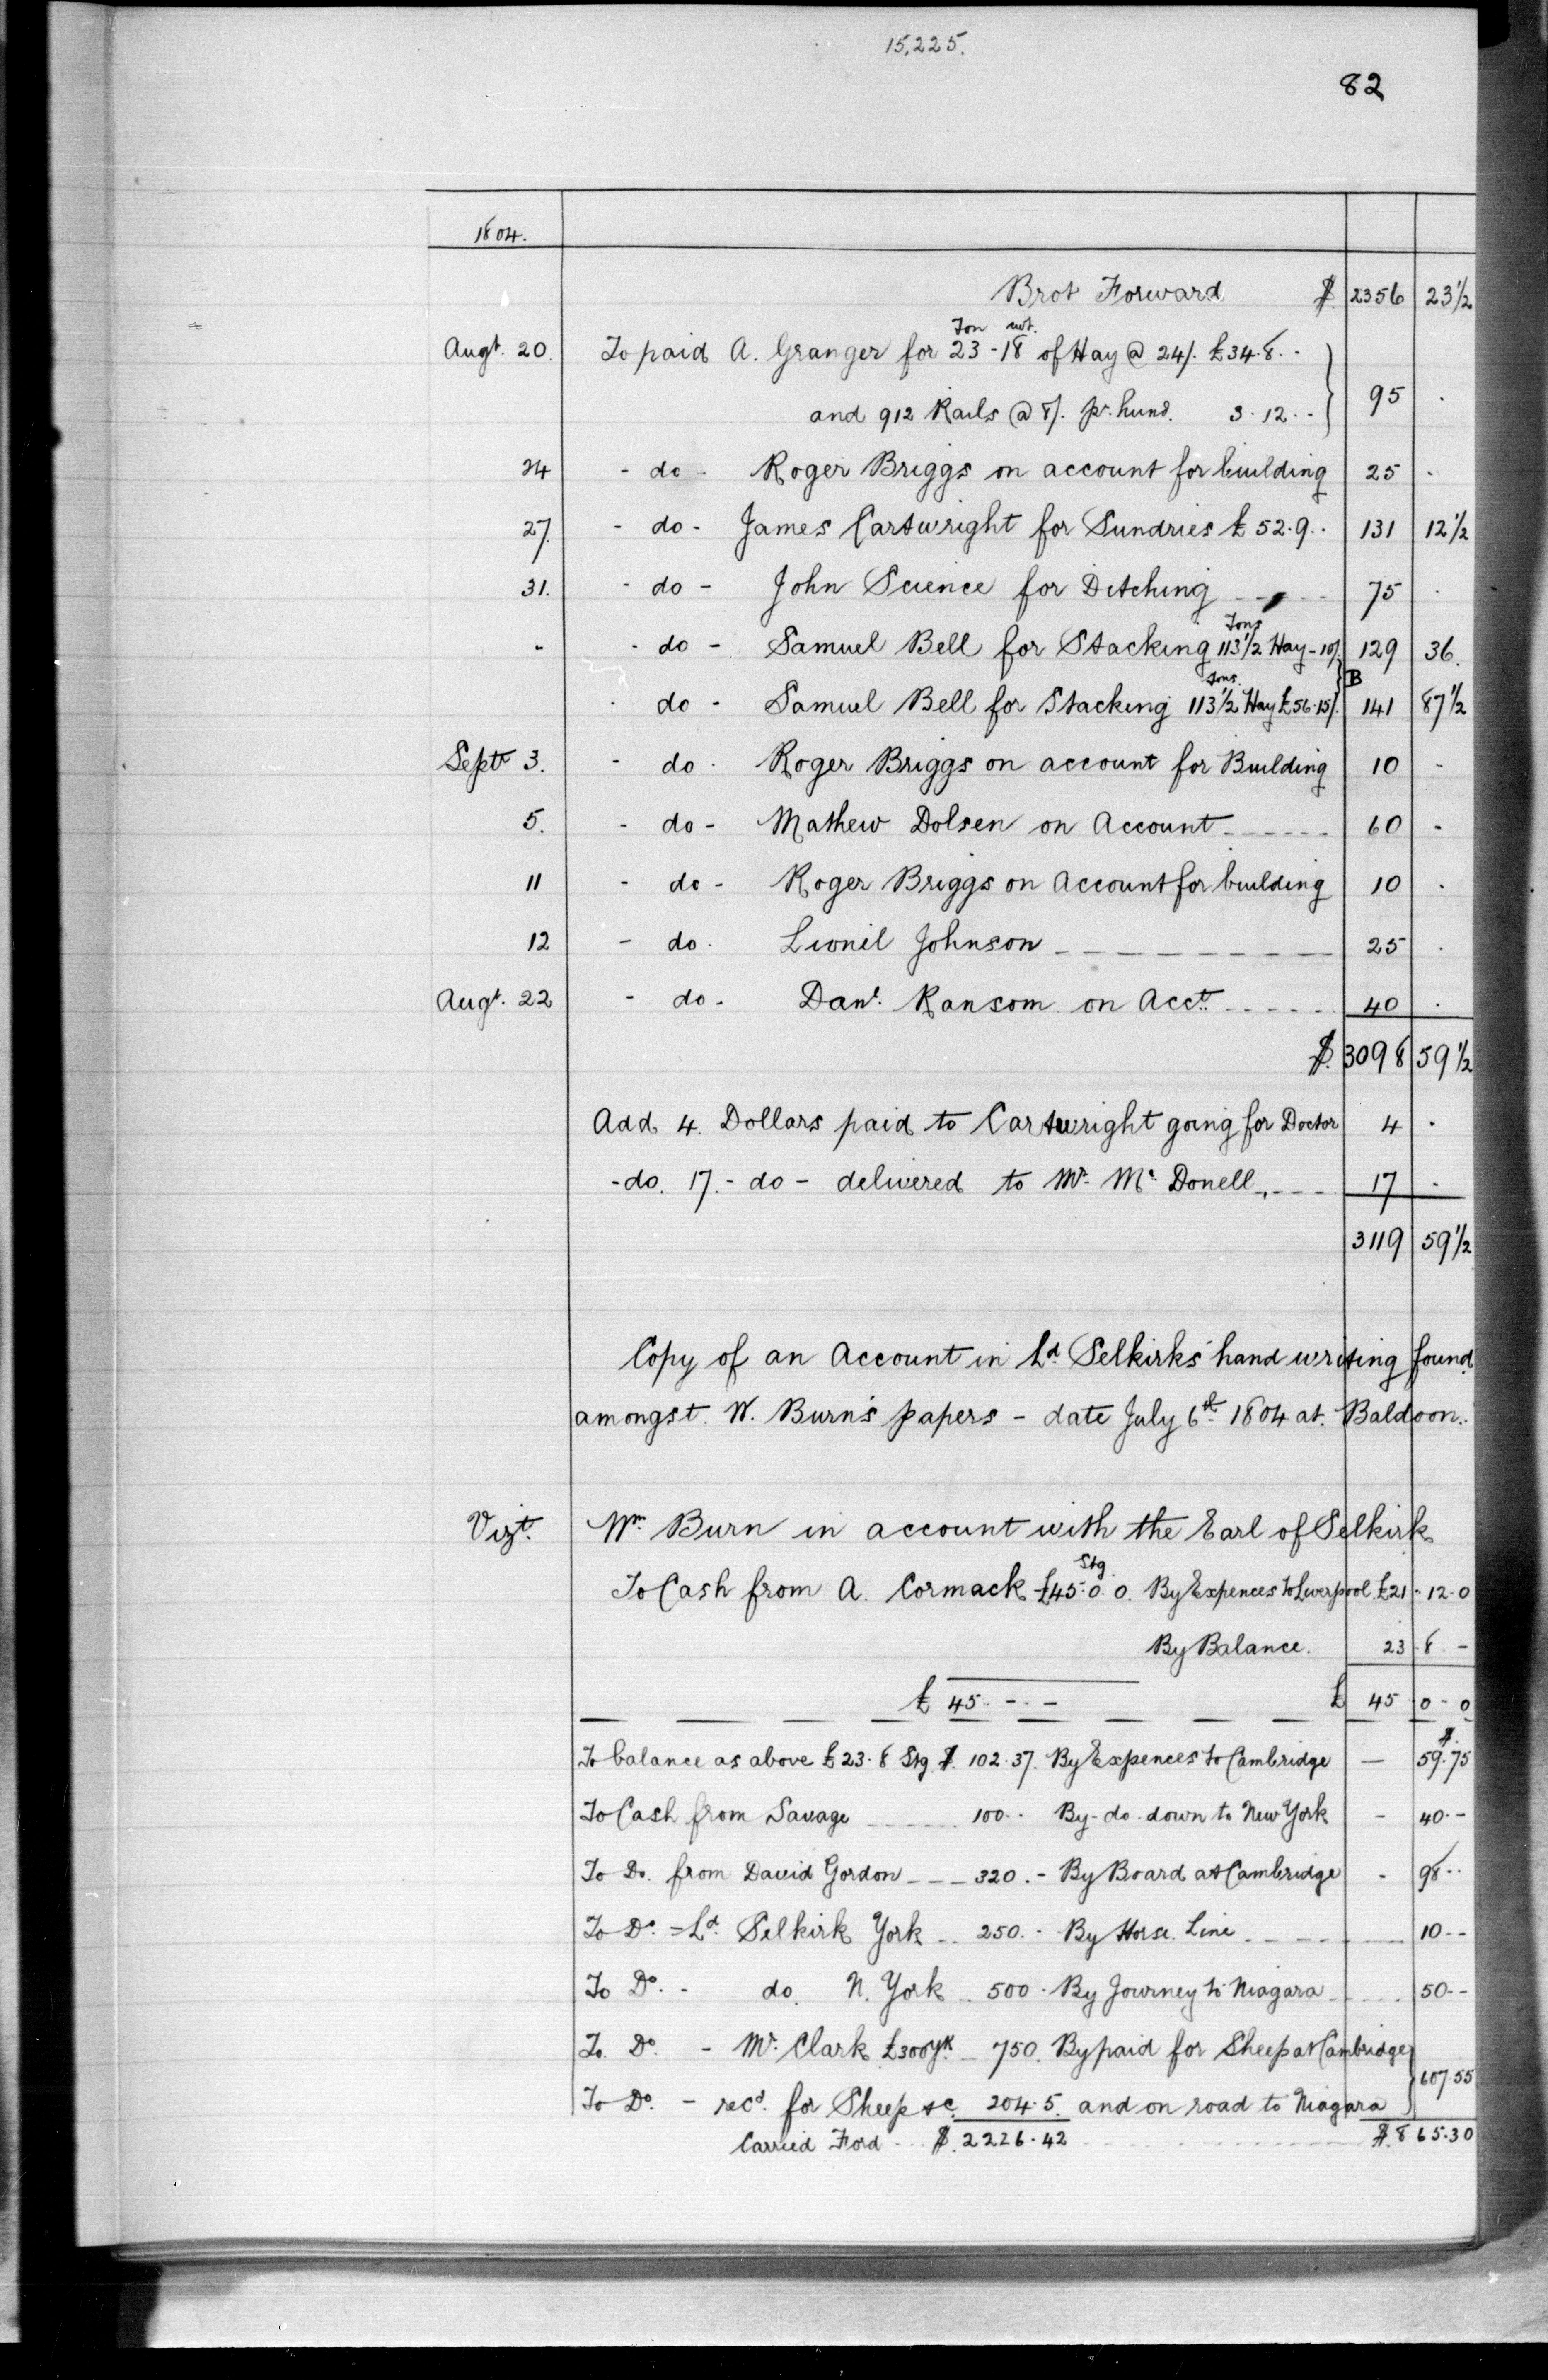 15,225.
82
1804.
Brot Forward $ 2356 23 1/2
Ton wt.
Augt. 20. To paid A. Granger for 23-18 of Hay @ 24/. £34.8.-
and 912 Rails @ 8/. pr. hund. 3.12.- } 95 .
24 - do - Roger Briggs on account for building 25 .
27. - do - James Cartwright for Sundries £52.9.. 131 12 1/2
31. - do - John Science for Ditching 75 .
Tons
" - do - Samuel Bell for Stacking 113 1/2 Hay - 10/. 129 36.
tons. B
- do - Samuel Bell for Stacking 113 1/2 Hay £56.15/. 141 87 1/2
Septr 3. - do - Roger Briggs on account for Building 10 -
5. - do - Mathew Dolsen on Account 60 -
11 - do - Roger Briggs on Account for building 10 .
12 - do. Lionil Johnson 25 .
Augt. 22 - do - Danl. Ransom on Acct. 40 .
$ 3098 59 1/2
Add 4. Dollars paid to Cartwright going for Doctor 4 .
- do. 17. - do - delivered to Mr. Mc. Donell 17 .
3119 59 1/2
Copy of an Account in Ld. Selkirks' hand writing found
amongst. W. Burn's papers - date July 6th 1804 at. Baldoon.
Vizt. Wm. Burn in account with the Earl of Selkirk
Stg.
To Cash from A. Cormack £45.0.0. By Expences to Liverpool. £21-12.0
By Balance. 23 8 -
£ 45 - - - £ 45 0-0
$.
To balance as above £23.8 Stg $. 102.37. By Expences to Cambridge — 59.75
To Cash from Savage 100.. By - do - down to New York - 40.-
To Do. from David Gordon - - - 320.- By Board at Cambridge - 98..
To Do. = Ld. Selkirk York .. 250.- By Horse. Line 10--
To Do. - do. N. York .. 500. By Journey to Niagara 50--
To. Do. - Mr. Clark £300 Yk. - 750. By paid for Sheep at Cambridge }
To Do. - recd. for Sheep &c. 204.5. and on road to Niagara } 607.55
Carried Ford - - $. 2226.42 $.865.30